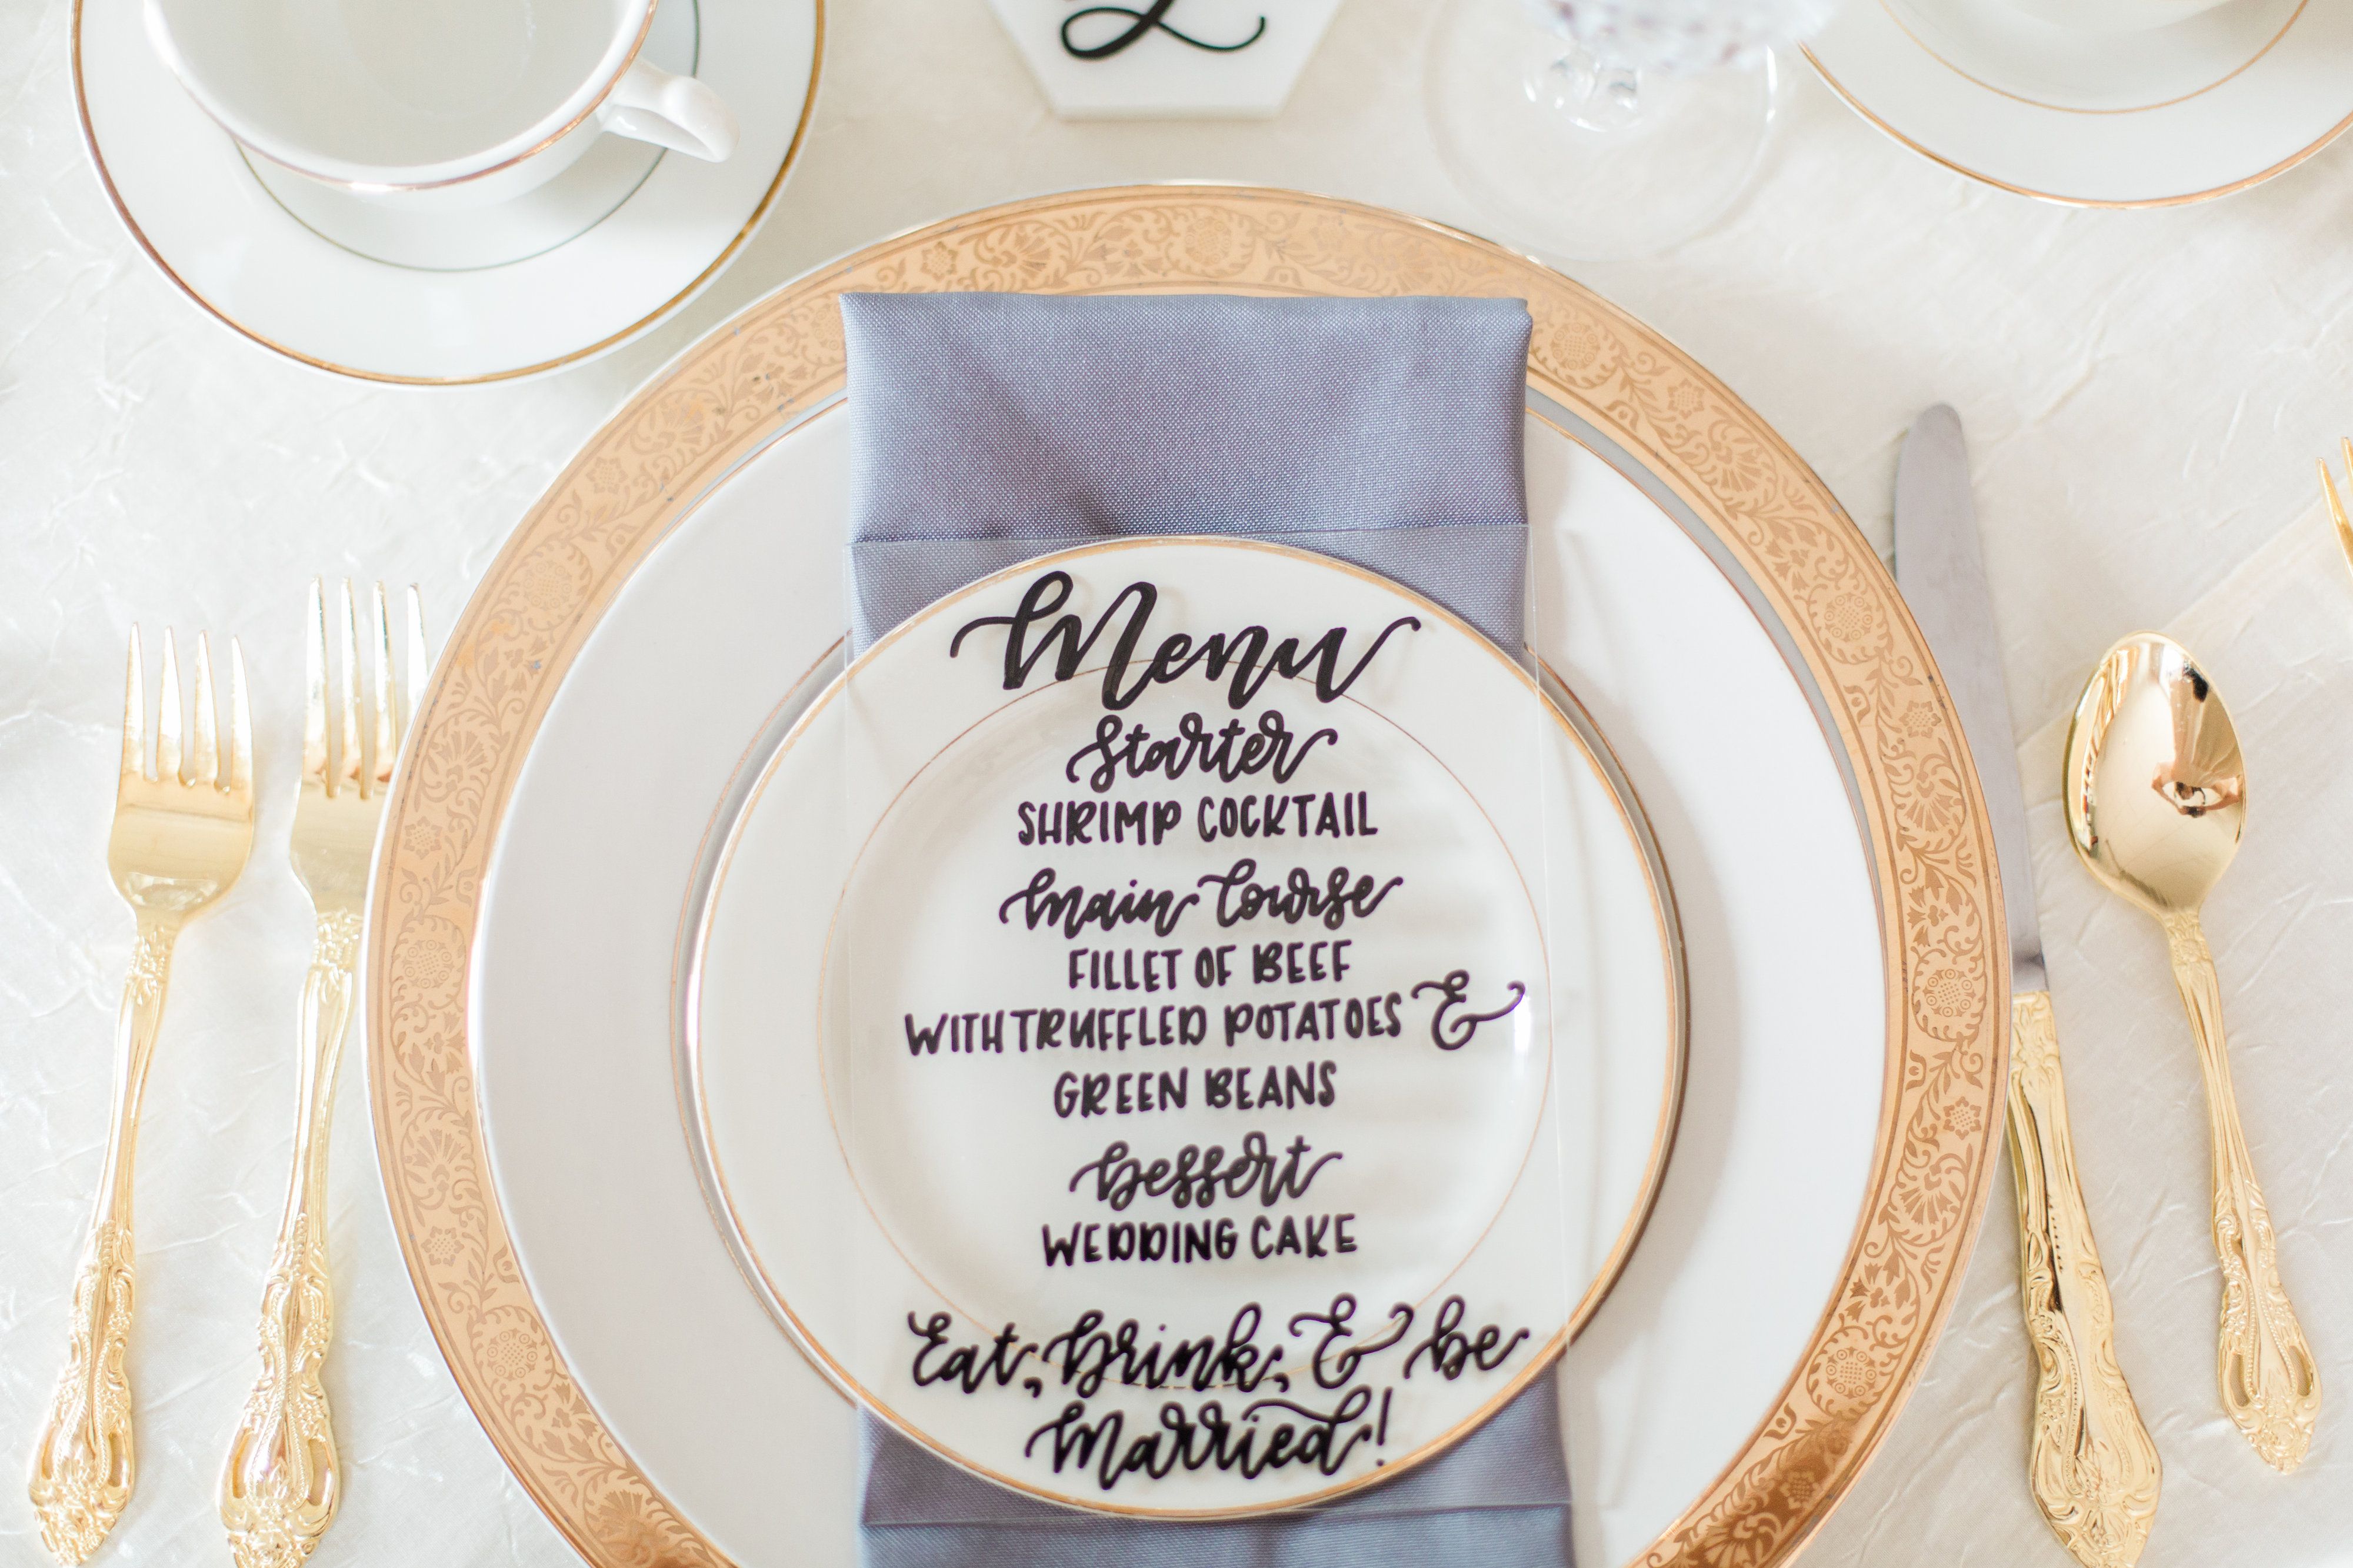 2
Menu
Starter
SHRIMP COCKTAIL
Main Course
FILLET OF BEEF
WITH TRUFFLED POTATOES &
GREEN BEANS
Dessert
WEDDING CAKE
Eat, Drink, & be
Married!